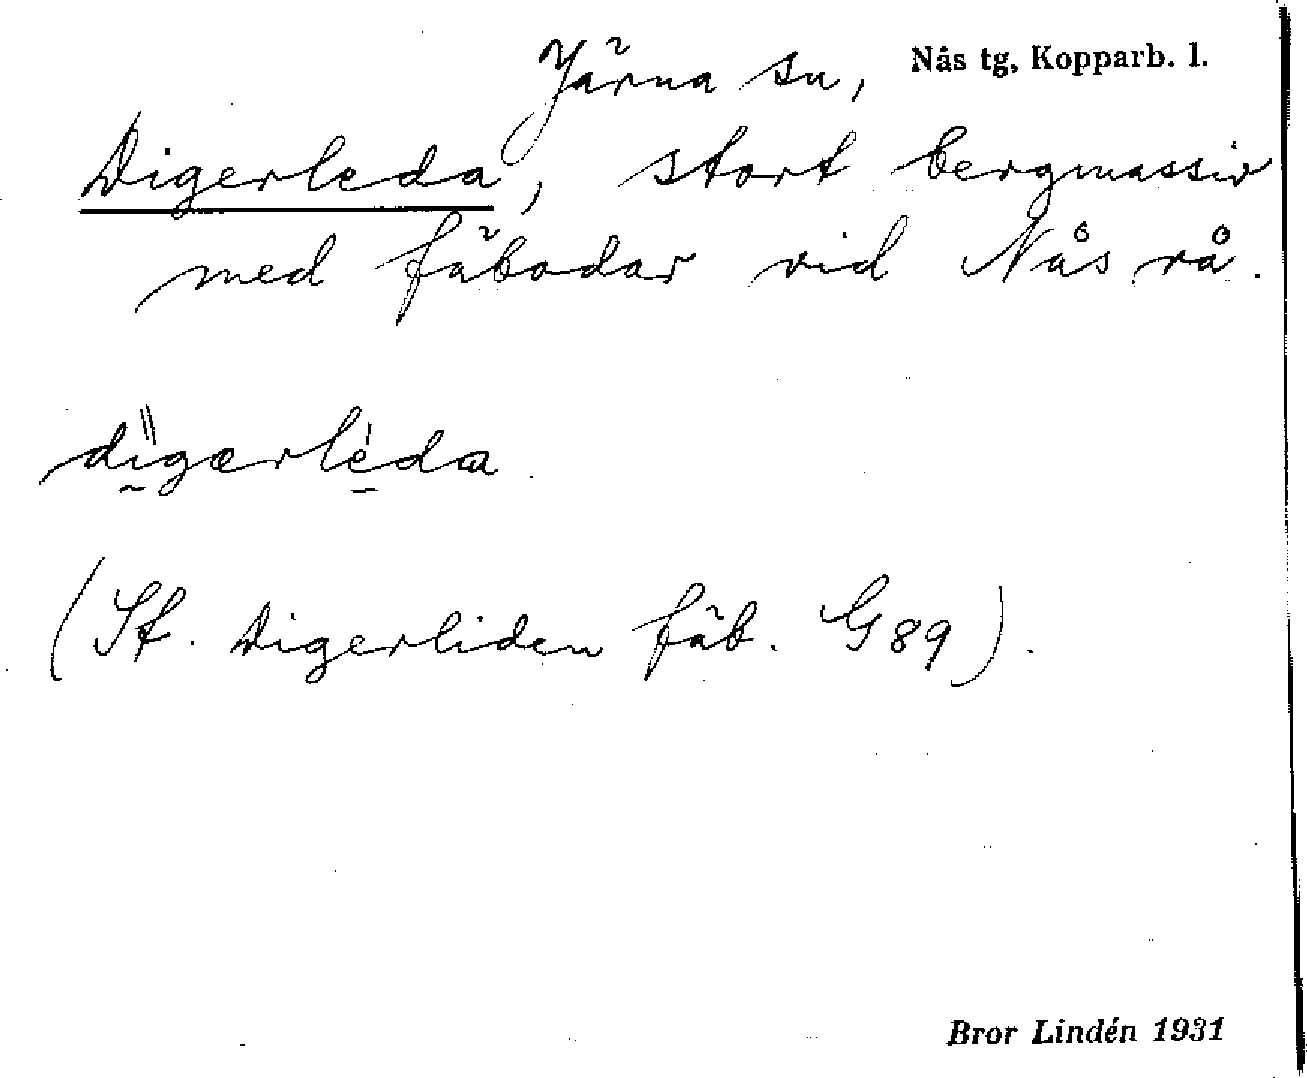 Järna sn, Nås tg, Kopparb. l.
Digerleda, stort bergmassiv
med fäbodar vid Nås rå.
digərlèda.
(Sf. Digerliden fäb. G89).
Bror Lindén 1931